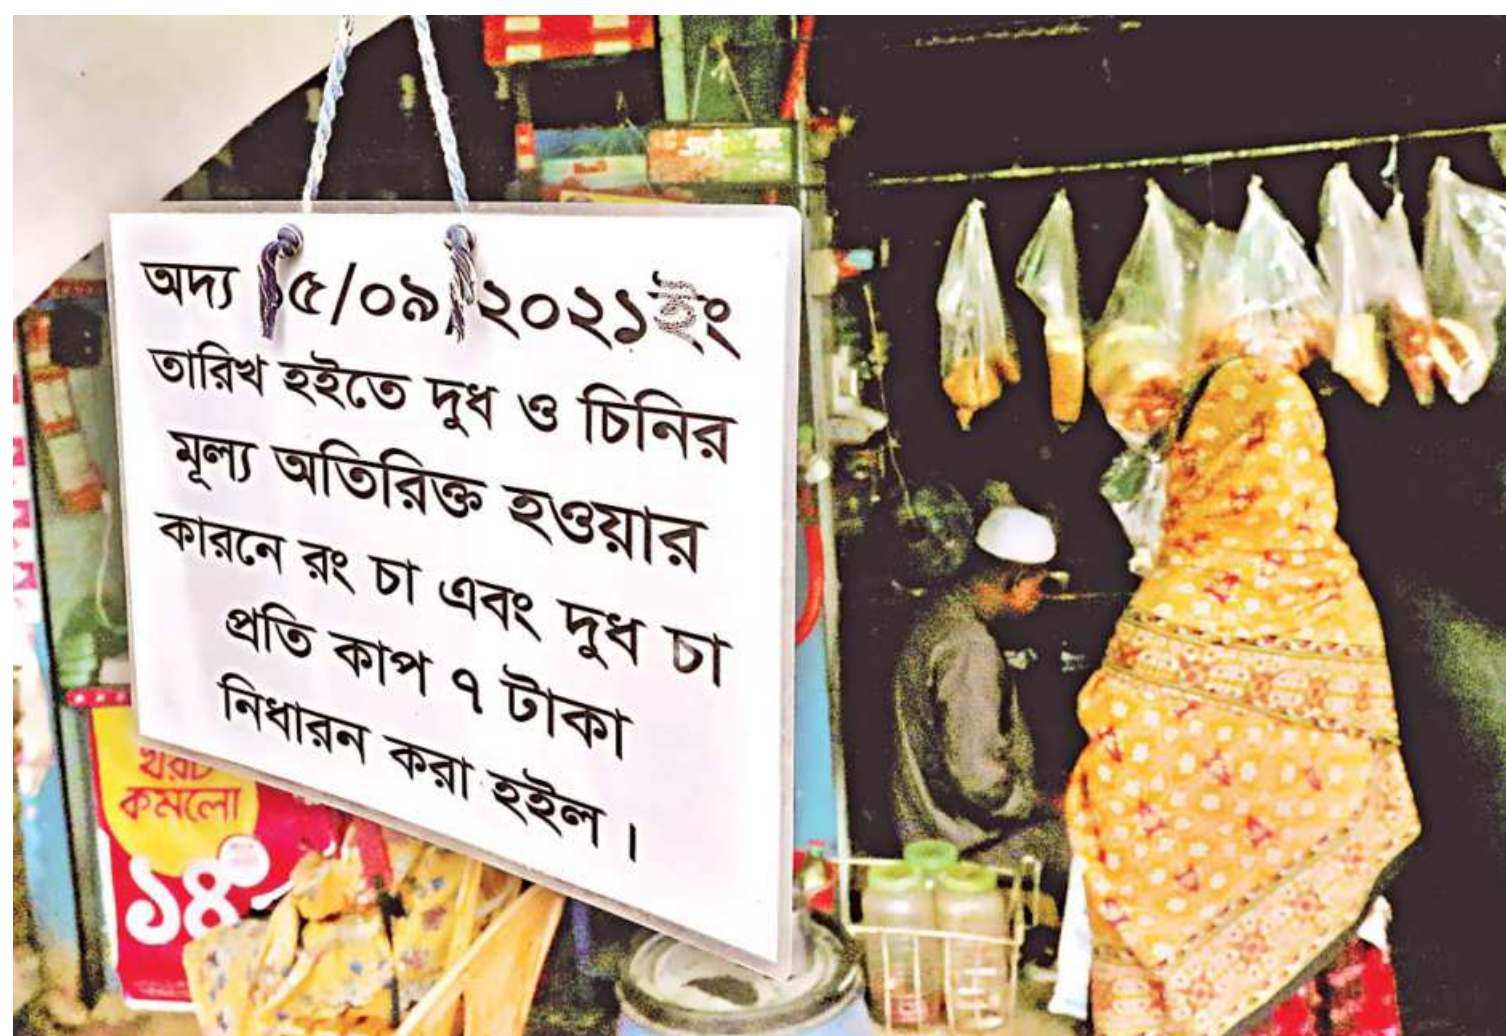 অদ্য ১৫/০৯/২০২১ইং
তারিখ হইতে দুধ ও চিনির
মূল্য অতিরিক্ত হওয়ার
কারনে রং চা এবং দুধ চা
প্রতি কাপ ৭ টাকা
নিধারন করা হইল ।
খরচ
কমলো
১৪